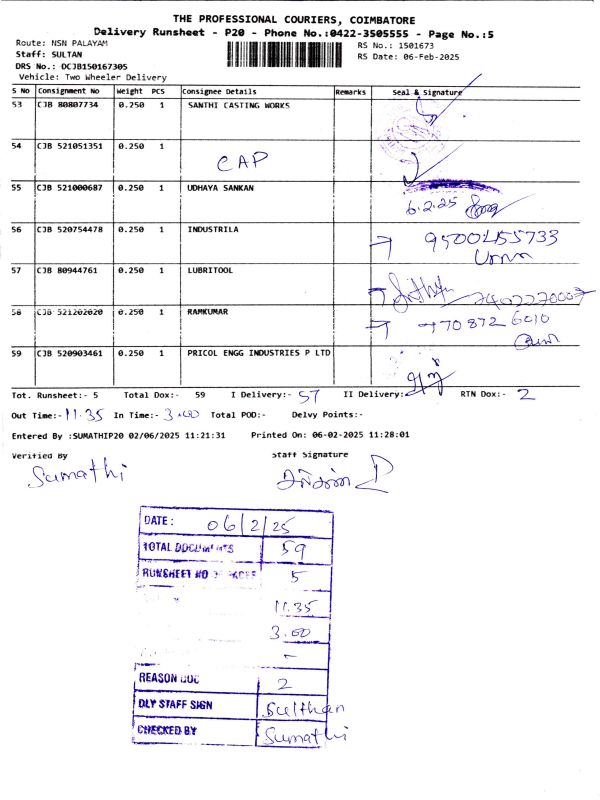 THE PROFESSIONAL COURIERS, COIMBATORE
Delivery Runsheet - P20 - Phone No.:0422-3505555 - Page No.:5
Route: NSN PALAYAM RS No.: 1501673
Staff: SULTAN RS Date: 06-Feb-2025
DRS No.: DCJB150167305
Vehicle: Two Wheeler Delivery
S No Consignment No Weight PCS Consignee Details Remarks Seal & Signature
53 CJB 80807734 0.250 1 SANTHI CASTING WORKS
54 CJB 521051351 0.250 1
CAP
55 CJB 521000687 0.250 1 UDHAYA SANKAN
6.2.25
56 CJB 520754478 0.250 1 INDUSTRILA
57 CJB 80944761 0.250 1 LUBRITOOL
7402270007
58 CJB 521202020 0.250 1 RAMKUMAR
59 CJB 520903461 0.250 1 PRICOL ENGG INDUSTRIES P LTD
Tot. Runsheet:- 5 Total Dox:- 59 I Delivery:- 57 II Delivery: RTN Dox:- 2
Out Time:- 11.35 In Time:- 3.00 Total POD:- Delvy Points:-
Entered By :SUMATHIP20 02/06/2025 11:21:31 Printed On: 06-02-2025 11:28:01
Verified By Staff Signature
Sumathi
DATE: 06/2/25
TOTAL DOCUMENTS 59
RUNSHEET NO OF PAGES 5
11.35
3.00
-
REASON DOC 2
DLY STAFF SIGN Sulthan
CHECKED BY Sumathi